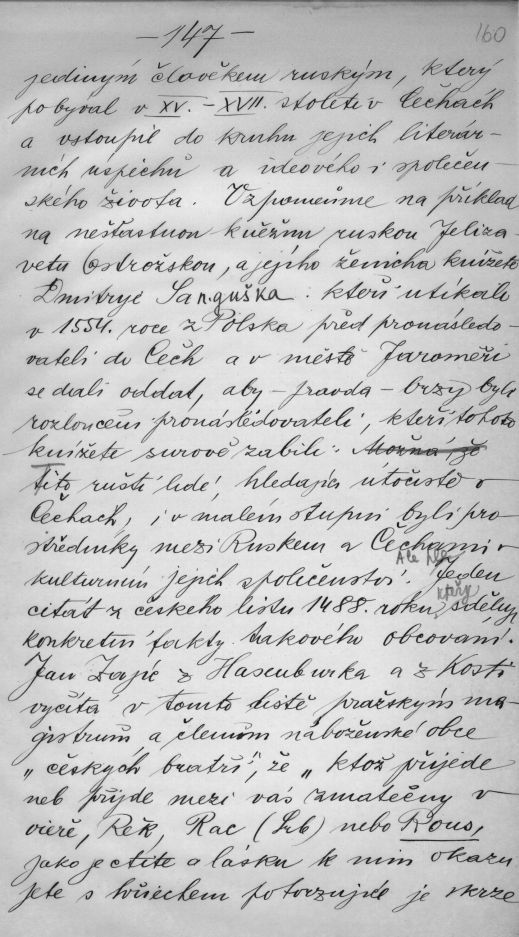 — 147 —
160
jediným člověkem ruským, který
pobýval v XV. – XVII. století v Čechách
a vstoupil do kruhu jejich literár-
ních úspěchů a ideového i společen-
ského života. Vzpomeňme na příklad
na nešťastnou kněžnu ruskou Jeliza-
vetu Ostrožskou, a jejího ženicha knížete
Dmitrye Sanguška. kteří utíkali
v 1554. roce z Polska před pronásledo-
vateli do Čech a v městě Jaroměři
se dali oddat, aby – pravda – brzy byli
rozloučeni pronásledovateli, kteří tohoto
knížete surově zabili. Možná, že
Tito ruští lidé, hledající útočiště v
Čechách, i v malém stupni byli pro-
středníky mezi Ruskem a Čechami v
kulturním jejich společenství. Ale Jeden
citát z českého listu 1488. roku, který sděluje
konkretní fakty takového obcování.
Jan Zajíc z Hasenburka a z Kosti
vyčítá v tomto listě pražským ma-
gistrům a členům náboženské obce
„českých bratří", že „ktož přijede
neb přijde mezi vás zmatečný v
vieře, Řek, Rac (Srb) nebo Rous,
jako jectíte a lásku k nim okazu
jete s hřiechem potvrzujíce je skrze